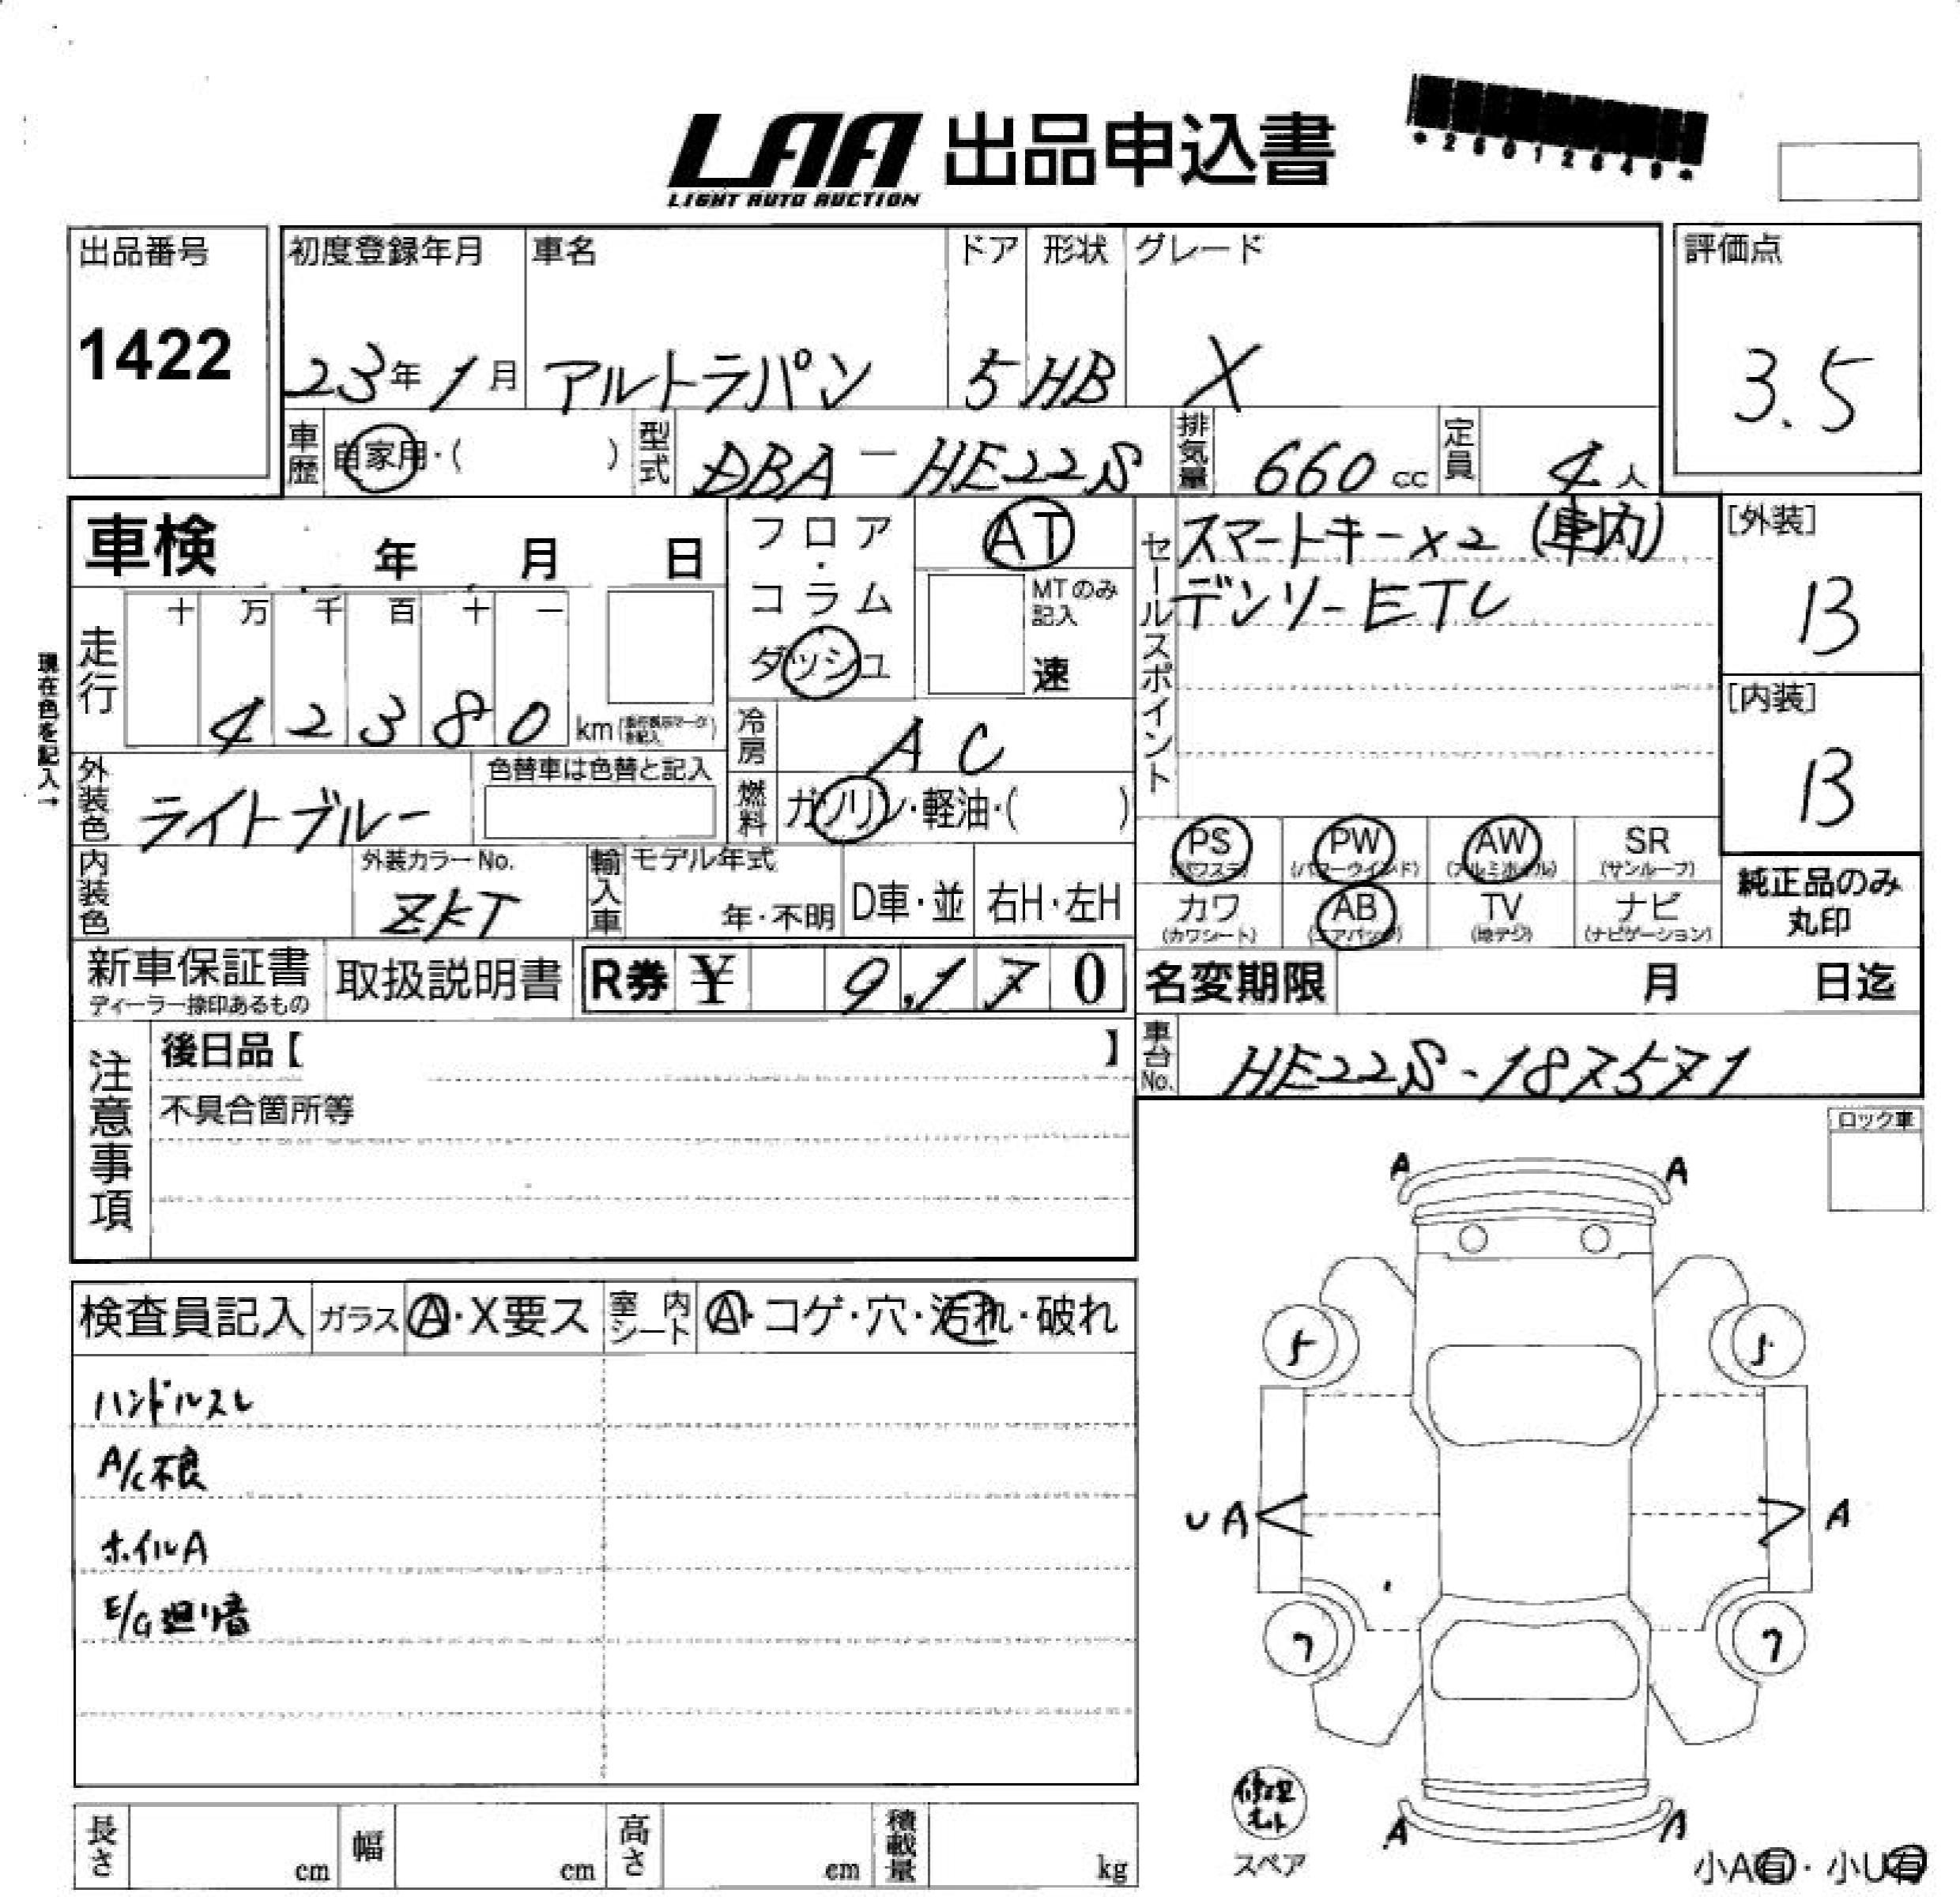 LAA 出品申込書
LIGHT AUTO AUCTION
出品番号 初度登録年月 車名 ドア 形状 グレード 評価点
1422 23年1月 アルトラパン 5 HB X 3.5
車歴 自家用・( ) 型式 DBA-HE22S 排気量 660cc 定員 4人
車検 年 月 日
フロア・コラム ダッシュ
AT
MTのみ記入
速
セールスポイント
スマートキー×2 (車内)
デンソーETC
[外装]
B
[内装]
B
現在色を記入→
走行 十 万 千 百 十 一
42380 km
冷房 AC
外装色 ライトブルー
色替車は色替と記入
燃料 ガソリン・軽油・( )
内装色
外装カラーNo.
ZKT
輸入車 モデル年式
年・不明 D車・並 右H・左H
PS PW AW SR
(パワステ) (パワーウインド) (アルミホイル) (サンルーフ)
カワ AB TV ナビ
(カワシート) (エアバッグ) (地デジ) (ナビゲーション)
純正品のみ
丸印
新車保証書
ディーラー捺印あるもの
取扱説明書 R券 ¥ 9,170
名変期限 月 日迄
注意事項
後日品【 】
不具合箇所等
車台No. HE22S-187571
ロック車
検査員記入 ガラス A・X要ス 室内シート A・コゲ・穴・汚れ・破れ
ハンドルスレ
A/C不良
ホイルA
E/G廻り音
A A
5 5
UA A
7 7
A A
修理キット
スペア
小A有・小U有
長さ cm 幅 cm 高さ cm 積載量 kg